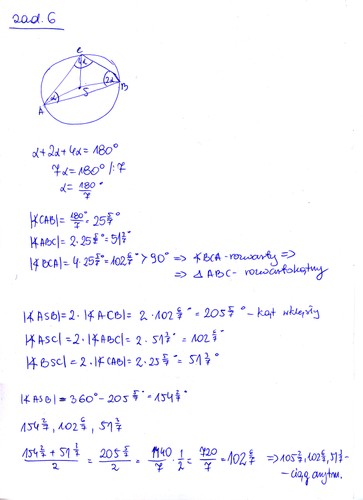 zad. 6
C
4α
α
2α
A
S
B
α+2α+4α=180°
7α=180° /:7
α=180°/7
|∢CAB|=180°/7=25 5/7°
|∢ABC|=2·25 5/7°=51 3/7°
|∢BCA|=4·25 5/7°=102 6/7°>90° ⇒ ∢BCA-rozwarty ⇒
⇒ △ABC- rozwartokątny
|∢ASB|=2·|∢ACB|= 2·102 6/7°=205 5/7° - kąt wklęsły
|∢ASC|=2·|∢ABC|=2·51 3/7°=102 6/7°
|∢BSC|=2·|∢CAB|=2·25 5/7°=51 3/7°
|∢ASB|=360°-205 5/7°=154 2/7°
154 2/7, 102 6/7, 51 3/7
(154 2/7+51 3/7)/2 = 205 5/7/2 = 1440/7·1/2=720/7=102 6/7 ⇒ 102 6/7, 51 3/7-
-ciąg arytm.